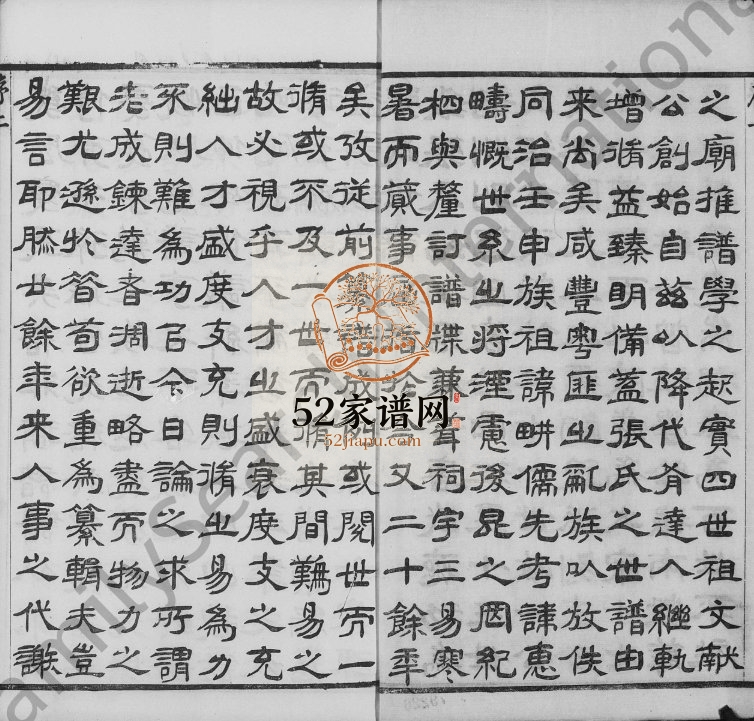 之廟推譜學之起實四世祖文獻
公創始自茲以降代有達人繼軌
增脩益臻明備蓋張氏之世譜由
来尚矣咸豐粵匪之亂族以放佚
同治壬申族祖諱畊儒先考諱惠
疇慨世系之將湮慮後昆之罔紀
栖與釐訂譜牒兼葺祠宇三易寒
暑而蕆事屈指於又二十餘年
矣攷從前譜成或閱世而一
脩或不及一世而脩其間難易之
故必視乎人才之盛衰度支之充
絀人才盛度支充則脩之易為力
不則難為功以今日論之求所謂
老成鍊達者凋逝略盡而物力之
艱尤遜於昔苟欲重為纂輯夫豈
易言耶肰廿餘年来人事之代謝
序二
52家谱网
52jiapu.com
FamilySearch International